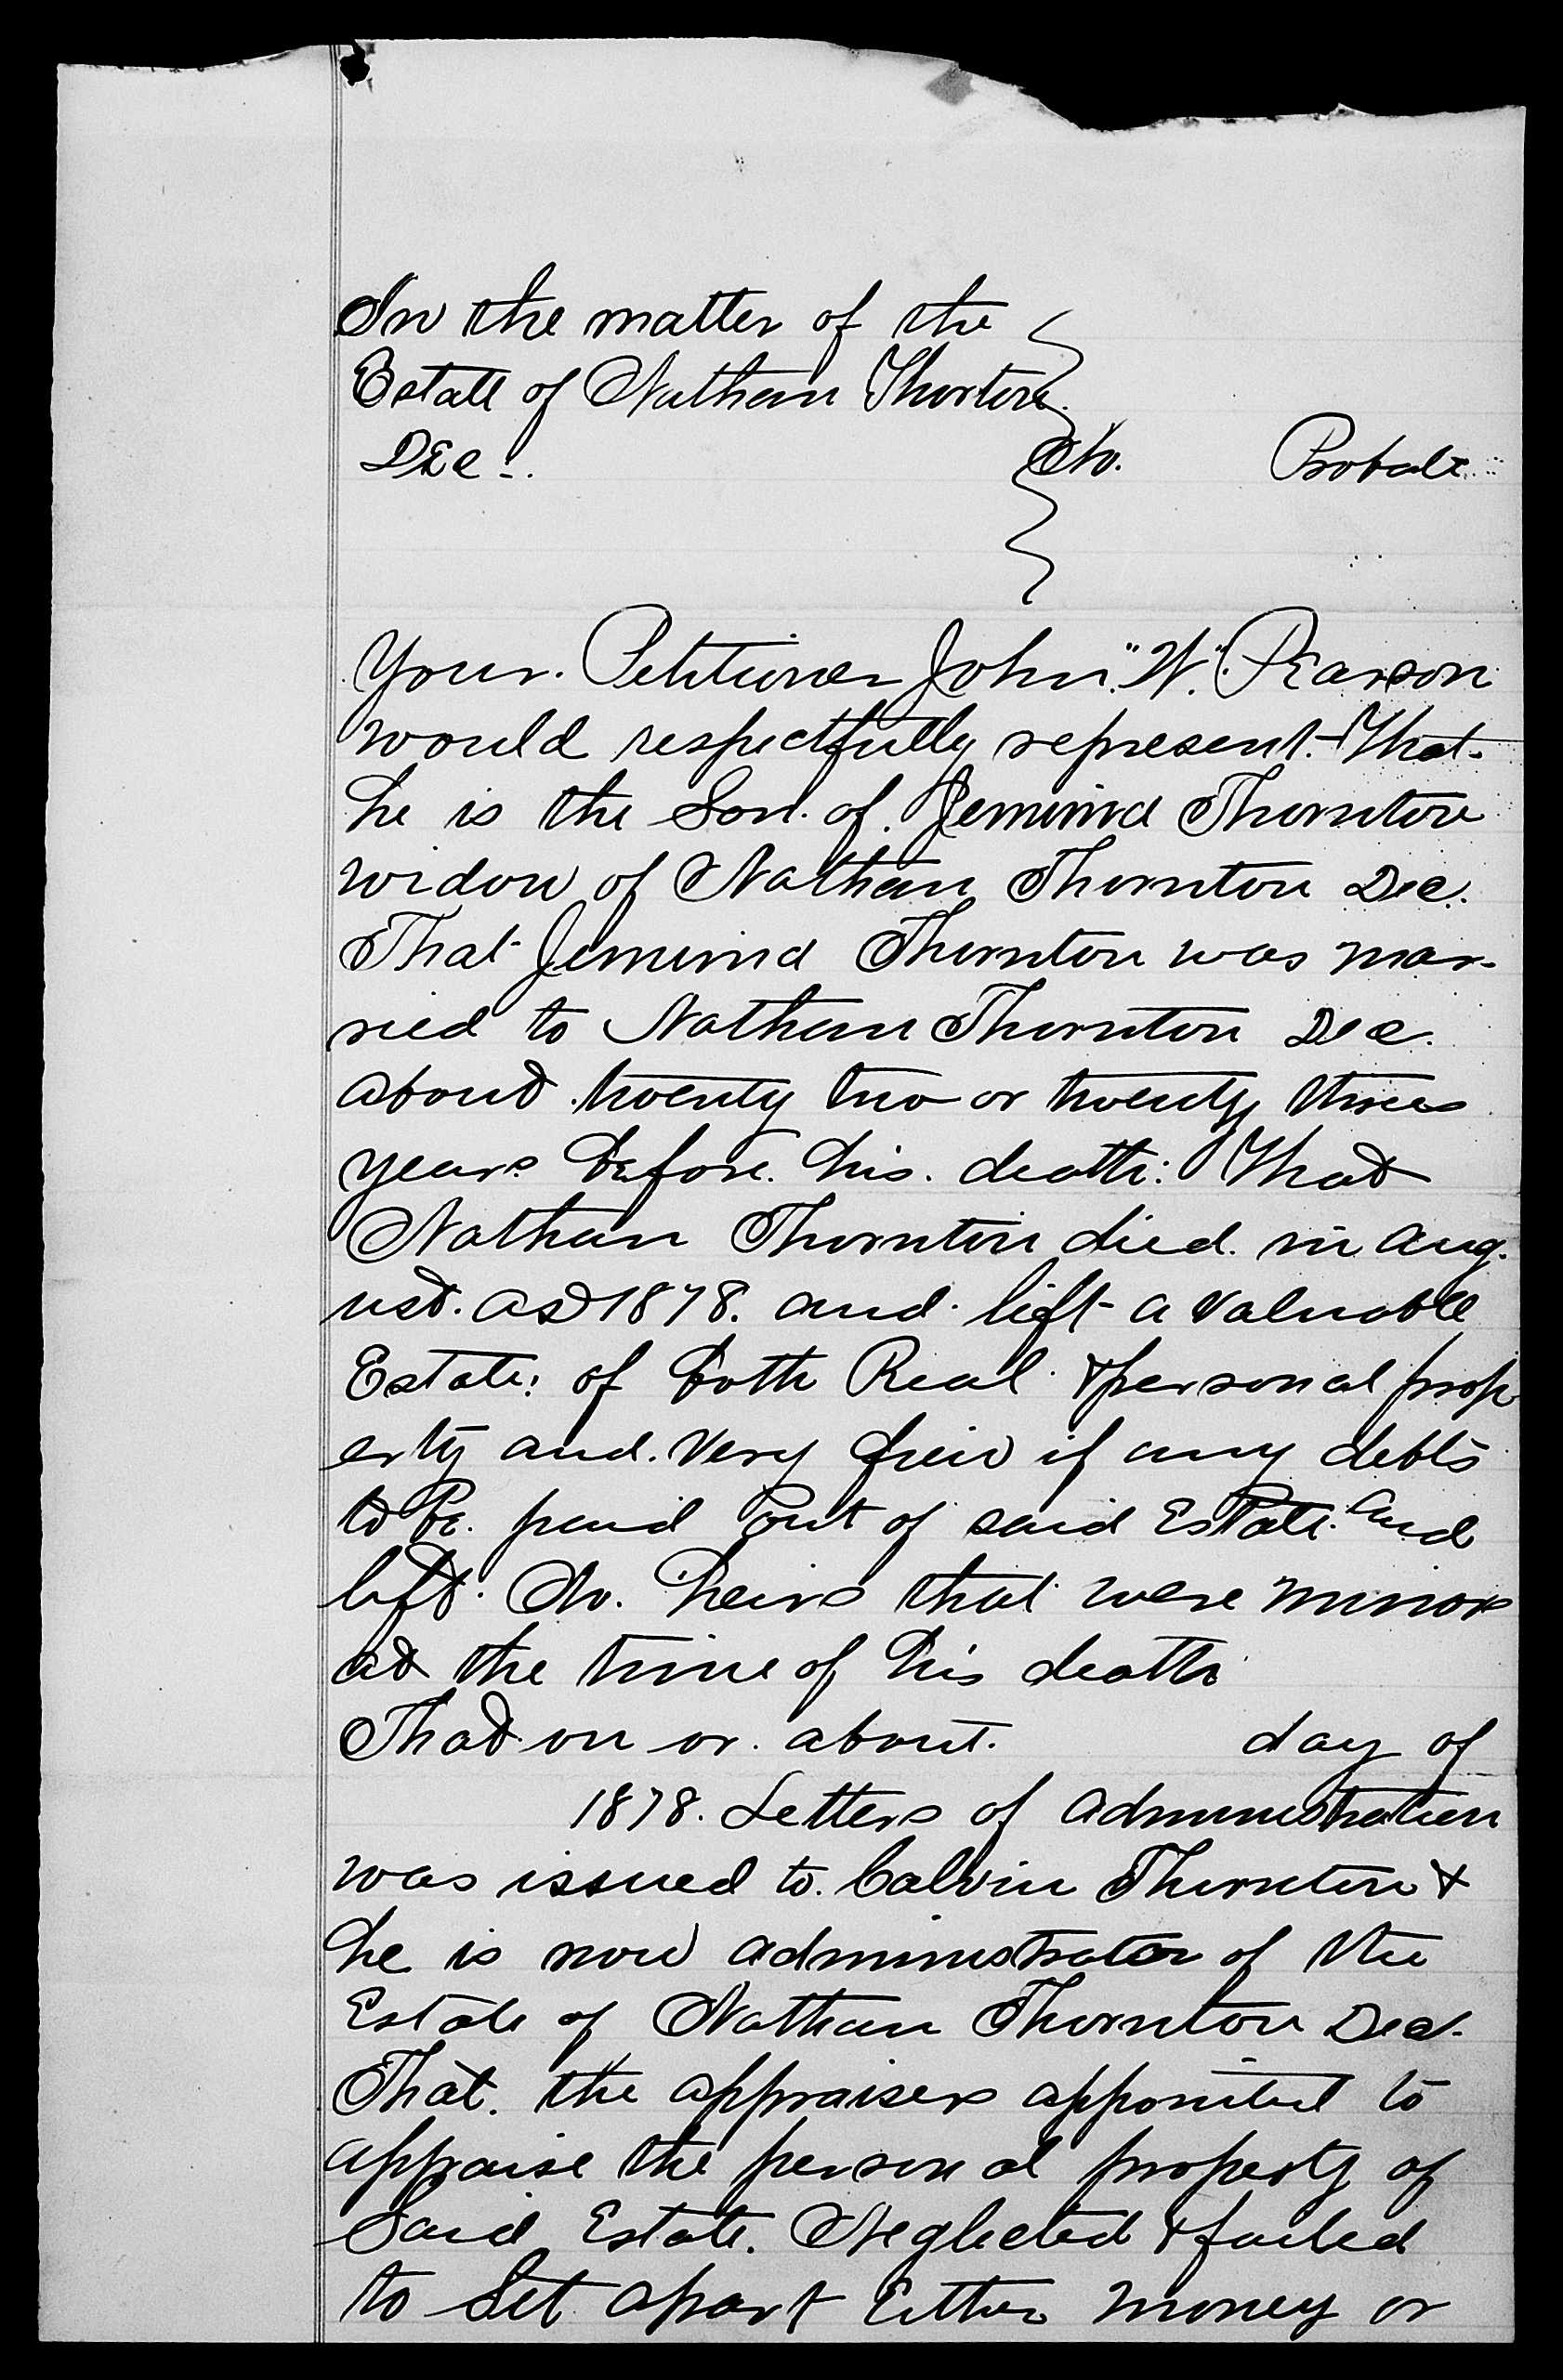 In the matter of the
Estate of Nathan Thorton.
Dec -. No. Probate
Your. Petitioner John. "W". Pearson
would respectfully represent. - That.
he is the Son. of. Jemima Thornton
widow of Nathan Thornton Dec.
That Jemima Thornton was mar-
ried to Nathan Thornton Dec.
about twenty two or twenty three
years before. his. death: That
Nathan Thornton died. in Aug-
ust. AD 1878. and. left a valuable
Estate: of both Real & personal prop-
erty and. very few if any debts
to be. paid out of said Estate. and
left. No. heirs that were minors
at the time of his death
That on or. about. day of
1878. Letters of administration
was issued to. Calvin Thornton &
he is now administrator of the
Estate of Nathan Thornton Dec.
That. the appraisers appointed to
appraise the personal property of
Said Estate. Neglected & failed
to Set apart Either money or